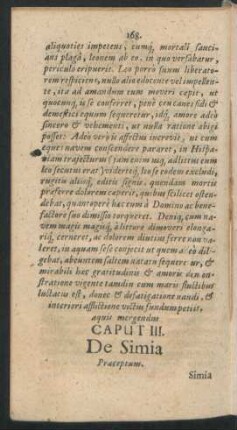 168.
aliquoties impetens, eumq́, mortali sauciâns
plagâ, leonem ab eo, in quo versabatur,
periculo eripuerit. Leo porrò suum liberatorem
respiciens, nullo alio edocente vel impellente,
ita ad amandum eum moveri capit, ut
quocunq́, is se conferret, ponè eum canis fidi &
domestici equum sequeretur, idq́, amore adeò
sincero & vehementi, ut nulla ratione abigi
posset: Adeo verò is affectus increvit, ut cum
eques navem conscendere pararet, in Hispaniam
trajecturus (jam enim usq́, ad litus eum
leo secutus erat) videretq́, leo se eodem excludi,
rugitu aliisq́, editis signis, quendam mortis
præferre dolorem capit, quibus scilicet ostendebat,
quantoperè hac cum à Domino ac benefactore
suo dimissio torqueret. Deniq, cum navem
magis magisq́, à littore dimoveri elongariq́,
cerneret, ac dolorem diutius ferre non valeret,
in aquam sese conjecit ut quem adeò diligebat,
abeuntem saltem natatu sequeretur, &
mirabili hac gratitudinis & amoris demonstratione
vigente tamdiu cum maris fluctibus
luctatus est, donec & defatigatione nandi, &
interiori afflictione victus fundum petiit,
aquis mergendus
CAPUT III.
De Simia
Præceptum.
Simia